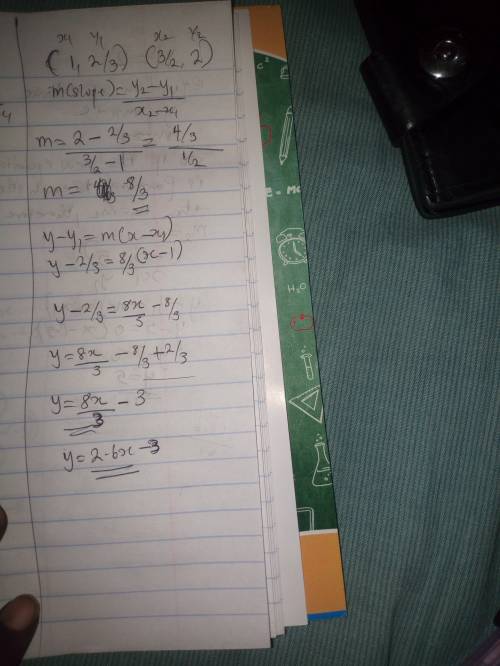 x₁ y₁ x₂ y₂
(1, 2/3) (3/2, 2)
m(slope) = y₂-y₁/x₂-x₁
m = 2 - 2/3 / 3/2 - 1 = 4/3 / 1/2
m = 8/3
y-y₁ = m(x-x₁)
y-2/3 = 8/3(x-1)
y-2/3 = 8x/3 - 8/3
y = 8x/3 - 8/3 + 2/3
y = 8x/3 - 3
y = 2.6x - 3
H₂O